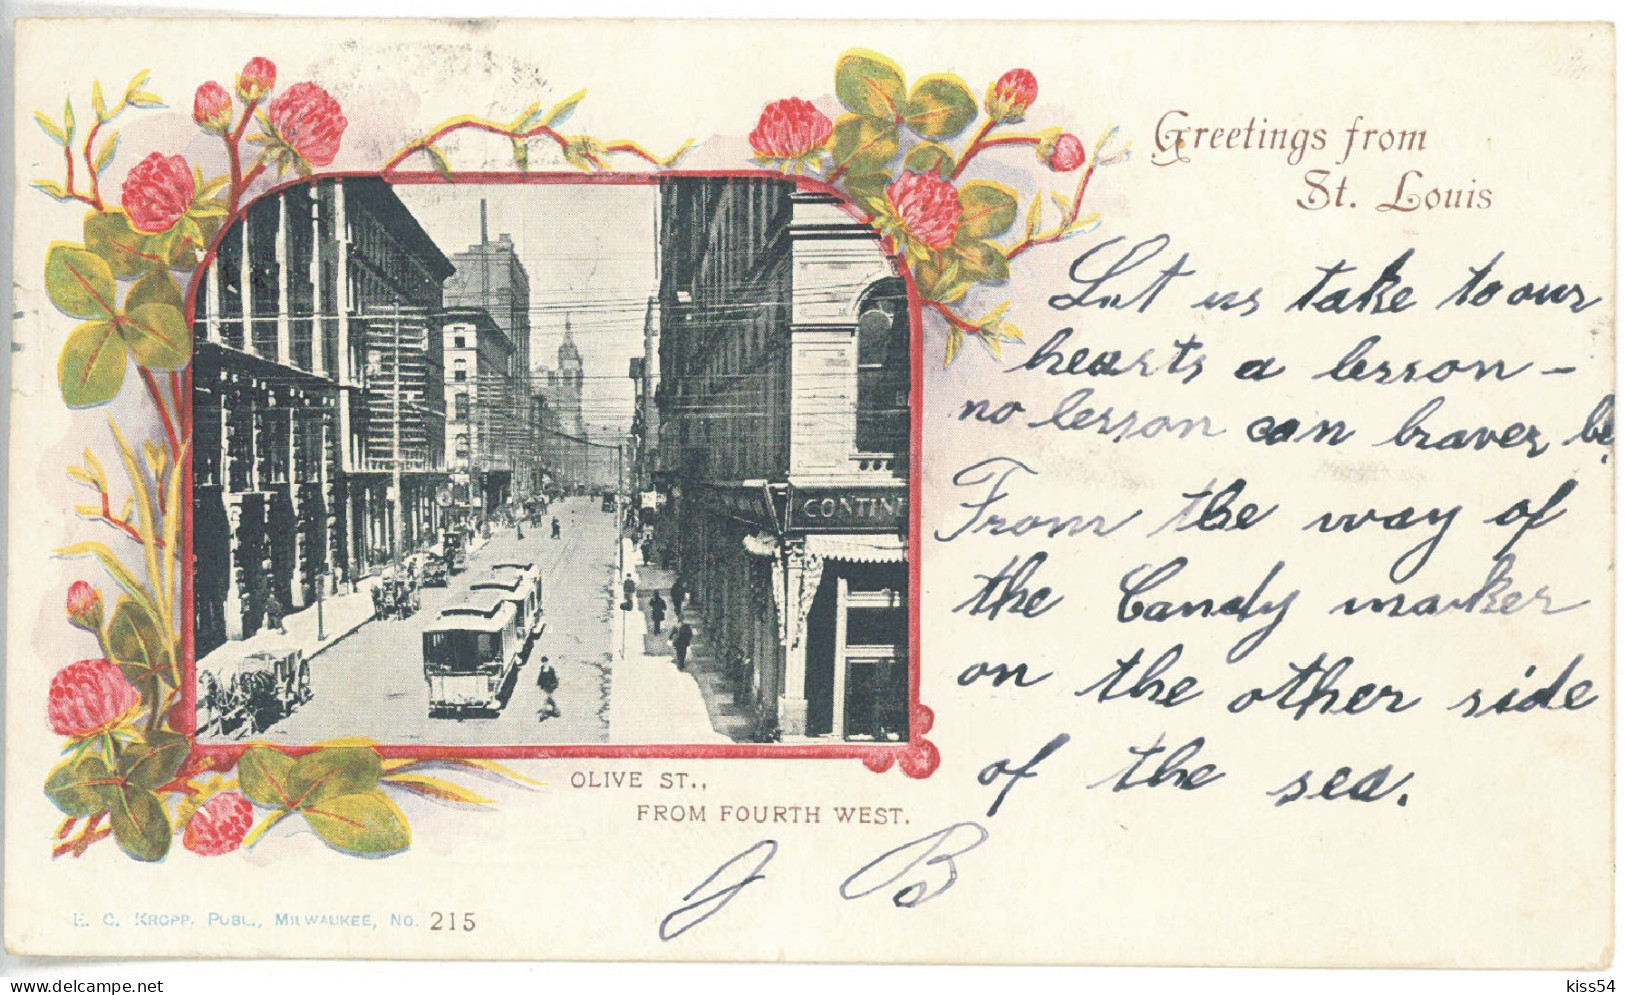 Greetings from
St. Louis
Let us take to our
hearts a lesson –
no lesson can braver be
From the way of
the Candy maker
on the other side
of the sea.
J B
CONTINE
OLIVE ST.,
FROM FOURTH WEST.
E. C. KROPP. PUBL., MILWAUKEE, NO. 215
delcampe.net
kiss54